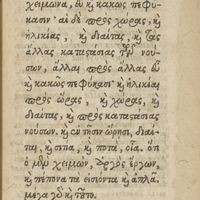 χειμῶνα, εὖ καὶ κακῶς πεφύ-
κασιν· αἱ δὲ πρὸς χώρας, καὶ
ἡλικίας, καὶ διαίτας, καὶ τὰς
ἄλλας καταστάσιας τῶν νού-
σων, ἄλλαι πρὸς ἄλλας εὖ
καὶ κακῶς πεφύκασι· καὶ ἡλικίαι
πρὸς ὥρας, καὶ χώρας, καὶ
διαίτας, καὶ πρὸς καταστάσιας
νούσων. καὶ ἐν τῇσιν ὥρῃσι, δίαι-
ται, καὶ σιτία, καὶ ποτὰ, οἷα. ὅτι
ὁ μὲν χειμὼν, ἀργὸς ἔργων,
καὶ πέπονα τὰ εἰσιόντα καὶ ἁπλᾶ.
μέγα γὰρ καὶ τοῦτο.